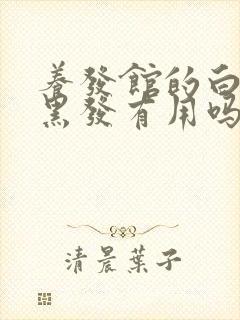 養發館的白
黑發有用嗎
清晨葉子